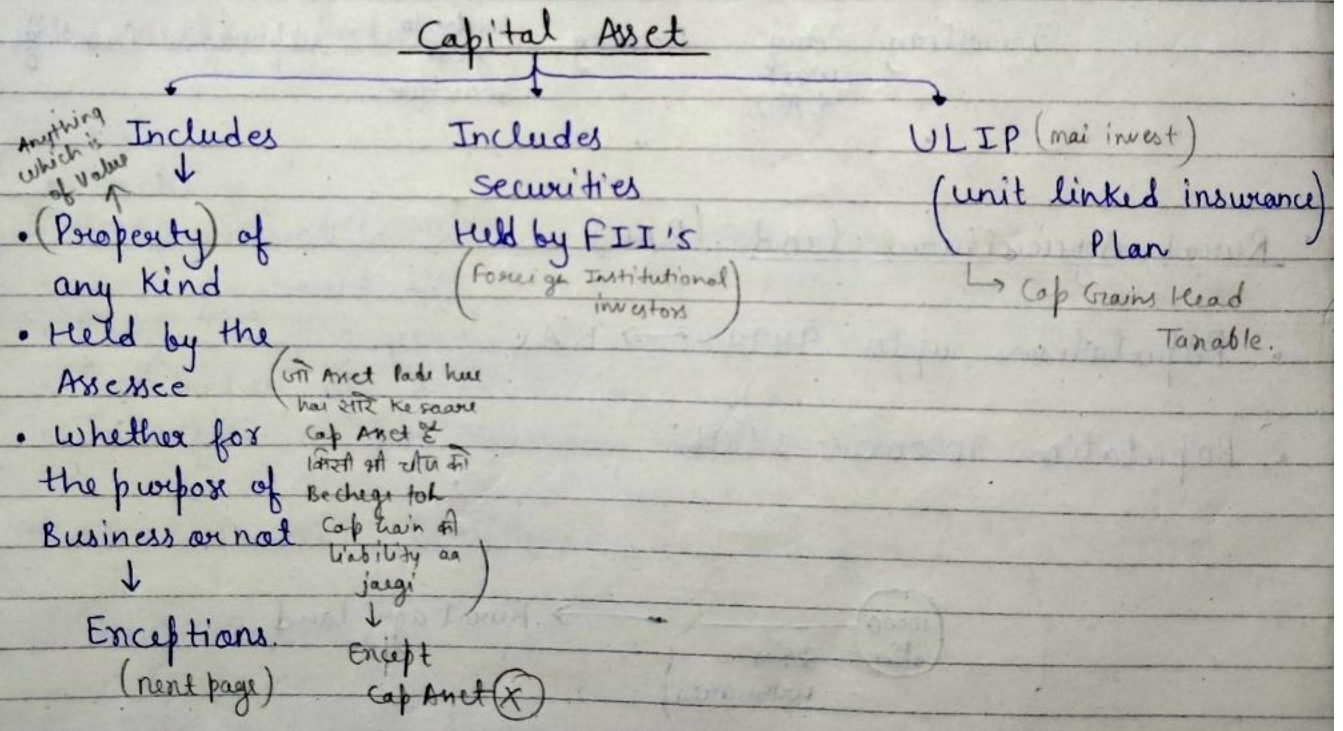 Capital Asset
Anything
which is
of value
Includes
• (Property) of
any Kind
• Held by the
Assessee
• Whether for
the purpose of
Business or not
Exceptions.
(next page)
(जो Asset Pade hue
hai सारे ke saare
Cap Asset है
किसी भी चीज को
Bechege toh
Cap Gain की
liability aa
jaegi)
Except
Cap Asset (X)
Includes
securities
Held by FII's
(Foreign Institutional
investors)
ULIP (mai invest)
(unit linked insurance
Plan)
Cap Gains Head
Taxable.